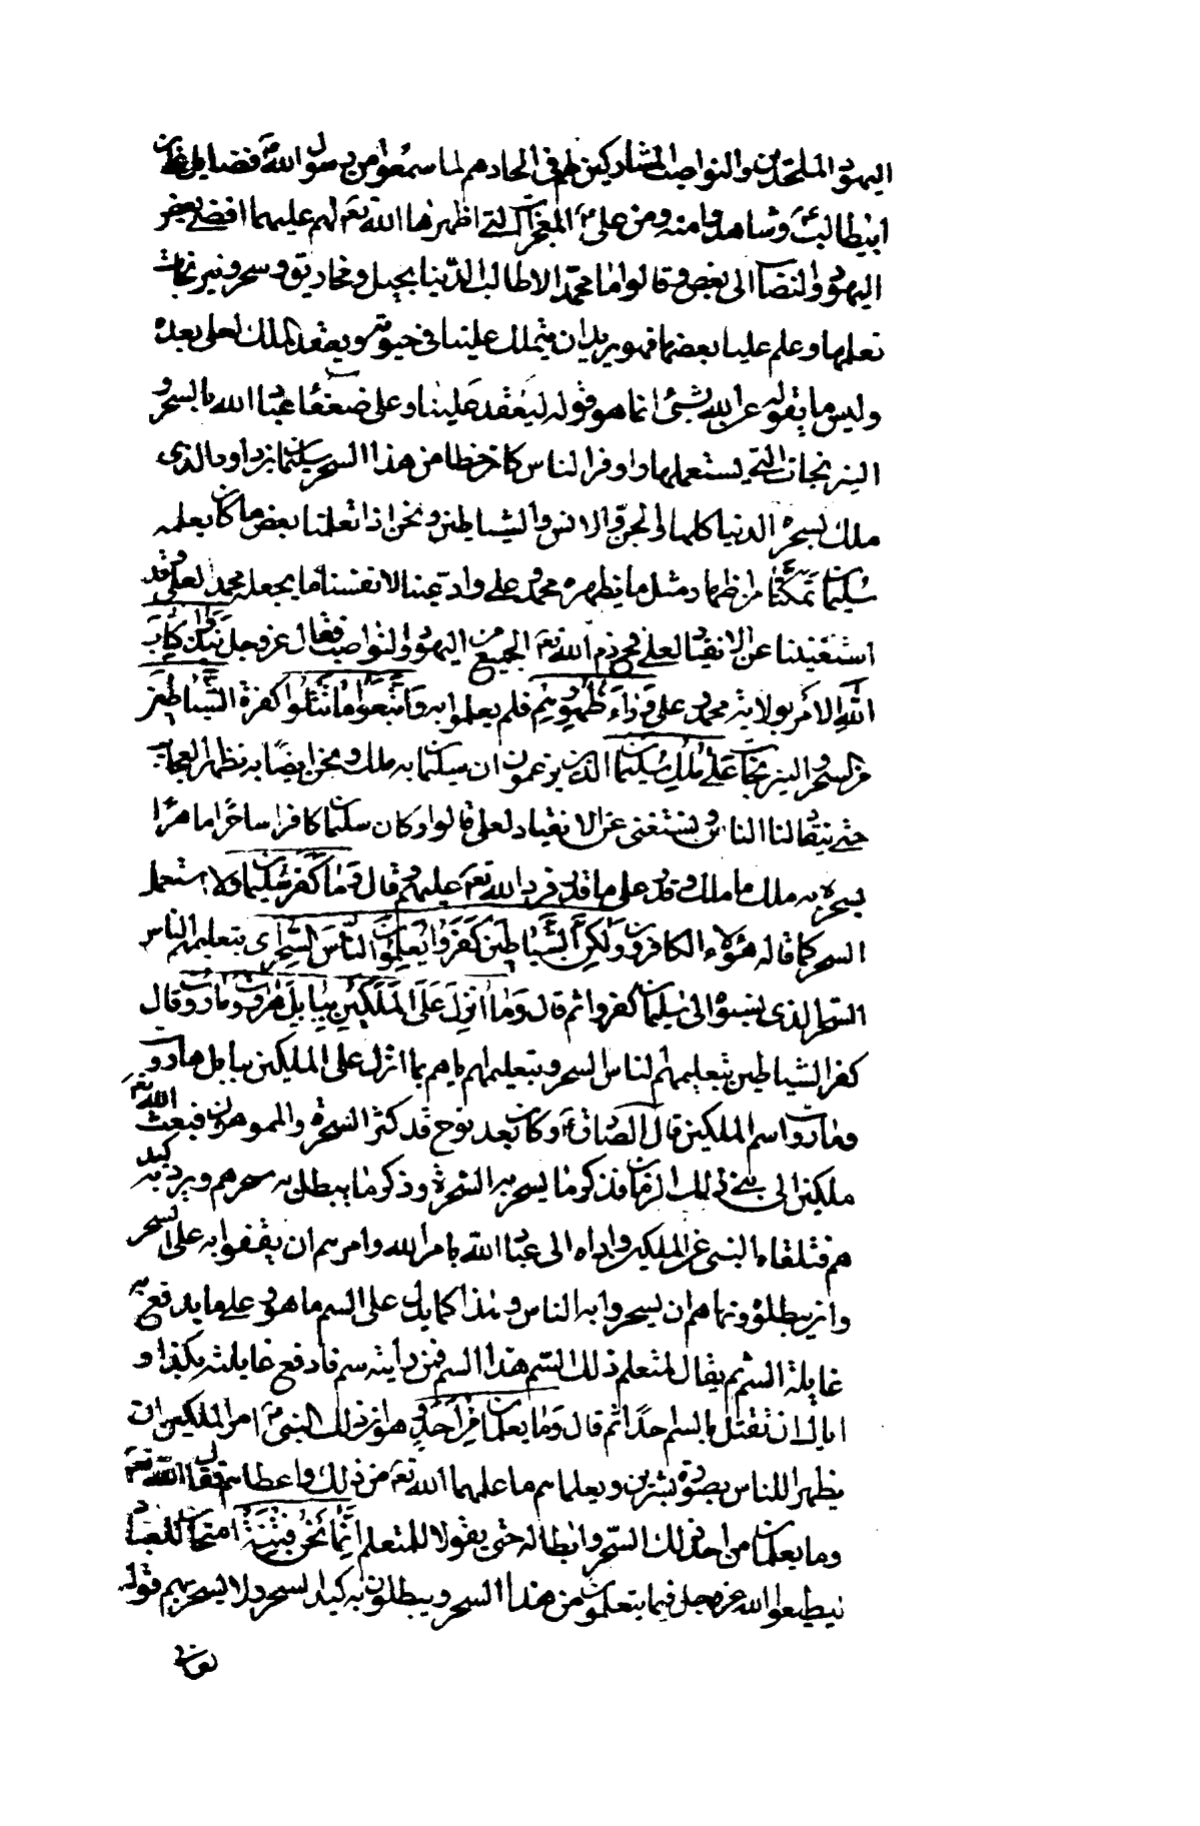 اليهود الملحدين والنواصب المشاركين لهم في الحادهم لما سمعوا من رسول الله ص فضايل علي بن
ابيطالب ع وشاهدوا منه ومن علي ع المعجزات التي اظهرها الله تع لهم عليهما افضى بعض
اليهود والنصاب الى بعض وقالوا ما محمد الا طالب الدنيا بحيل ومخاريق وسحر ونيرنجات
تعلمها وعلم عليا بعضها فهو يريد ان يتملك علينا في حيوته ويعقد الملك لعلي بعده
وليس ما يقوله عن الله بشئ انما هو قوله ليعقد علينا وعلى ضعفاء عباد الله بالسحر و
النيرنجات التي يستعملها واوفر الناس كان حظا من هذا السحر سليمان بن داود الذى
ملك بسحره الدنيا كلها والجن والانس والشياطين ونحن اذا تعلمنا بعض ما كان يعلمه
سليمان تمكنا من اظهار مثل ما يظهره محمد وعلي وادعينا لانفسنا ما يجعله محمد لعلي وقد
استغنينا عن الانقياد لعلي فح ذم الله تع الجميع من اليهود والنواصب فقال عز وجل نبذوا كتاب
الله الامر بولاية محمد وعلي وراء ظهورهم فلم يعملوا به واتبعوا ما تتلوا كفرة الشياطين
من السحر والنيرنجات على ملك سليمان الذين يزعمون ان سليمان به ملك ونحن ايضا به نظهر العجايب
حتى ينقاد لنا الناس ونستغنى عن الانقياد لعلي قالوا وكان سليمان كافرا ساحرا ماهرا
بسحره به ملك ما ملك وقدر على ما قدر فرد الله تع عليهم وقال وما كفر سليمان ولا استعمل
السحر كما قاله هؤلاء الكافرون ولكن الشياطين كفروا يعلمون الناس السحر اى بتعليمهم الناس
السحر الذى نسبوه الى سليمان كفروا ثم قال وما انزل على الملكين ببابل هاروت وماروت وقال
كفر الشياطين بتعليمهم الناس السحر وبتعليمهم اياهم بما انزل على الملكين ببابل هاروت
وماروت اسم الملكين قال الصادق ع وكان بعد نوح قد كثر السحرة والمموهون فبعث الله تع
ملكين الى نبي ذلك الزمان فذكر ما يسحر به السحرة وذكر ما يبطل به سحرهم ويرد به كيد
هم فتلقاه النبى عن الملكين واداه الى عباد الله بامر الله وامرهم ان يقفوا به على السحر
وان يبطلوه ونهاهم ان يسحروا به الناس وهذا كما يدل على السم ما هو وعلى ما يدفع به
غايلة السم ثم يقال لمتعلم ذلك السم هذا السم فمن رايته سم فادفع غايلته بكذا و
اياك ان تقتل بالسم احدا ثم قال وما يعلمان من احد وهو ان ذلك النبي ع امر الملكين ان
يظهرا للناس بصورة بشرين ويعلماهم ما علمهما الله تع من ذلك واعطاهم فقال الله تع
وما يعلمان من احد ذلك السحر وابطاله حتى يقولا للمتعلم انما نحن فتنة امتحان للعباد
ليطيعوا الله عز وجل فيما يتعلمون من هذا السحر ويبطلون به كيد السحر ولا يسحرهم قوله
تعالى